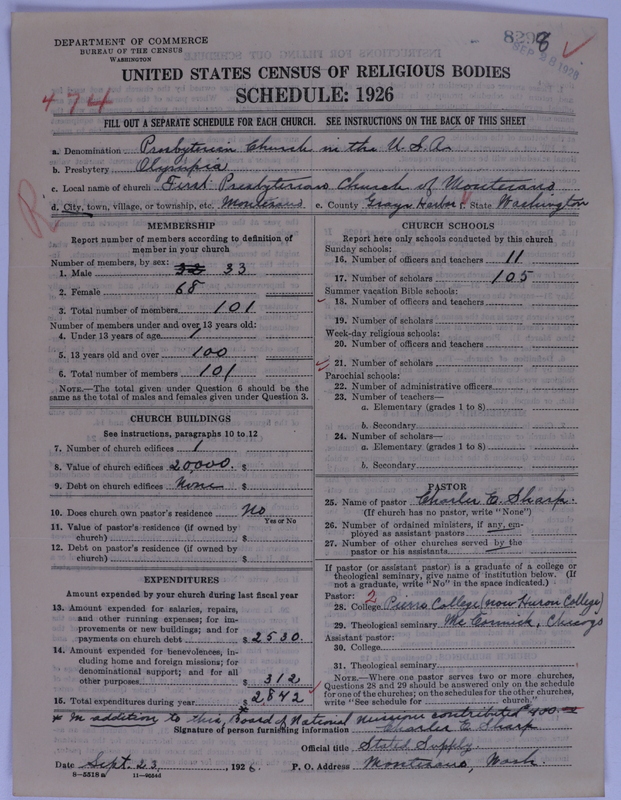 DEPARTMENT OF COMMERCE
BUREAU OF THE CENSUS
WASHINGTON
8298
SEP 28 1926
UNITED STATES CENSUS OF RELIGIOUS BODIES
SCHEDULE: 1926
474
FILL OUT A SEPARATE SCHEDULE FOR EACH CHURCH. SEE INSTRUCTIONS ON THE BACK OF THIS SHEET
a. Denomination Presbyterian Church in the U.S.A.
b. Presbytery Olympia
c. Local name of church First Presbyterian Church of Montesano
d. City, town, village, or township, etc. Montesano e. County Grays Harbor f. State Washington
R
MEMBERSHIP
Report number of members according to definition of
member in your church
Number of members, by sex:
1. Male 33
2. Female 68
3. Total number of members 101
Number of members under and over 13 years old:
4. Under 13 years of age 1
5. 13 years old and over 100
6. Total number of members 101
NOTE.—The total given under Question 6 should be the
same as the total of males and females given under Question 3.
CHURCH BUILDINGS
See instructions, paragraphs 10 to 12
7. Number of church edifices 1
8. Value of church edifices 20,000. $
9. Debt on church edifices None $
10. Does church own pastor's residence No
Yes or No
11. Value of pastor's residence (if owned by
church) $
12. Debt on pastor's residence (if owned by
church) $
EXPENDITURES
Amount expended by your church during last fiscal year
13. Amount expended for salaries, repairs,
and other running expenses; for im-
provements or new buildings; and for
payments on church debt $ 2530.
14. Amount expended for benevolences, in-
cluding home and foreign missions; for
denominational support; and for all
other purposes $ 312
15. Total expenditures during year $ 2842
CHURCH SCHOOLS
Report here only schools conducted by this church
Sunday schools:
16. Number of officers and teachers 11
17. Number of scholars 105
Summer vacation Bible schools:
18. Number of officers and teachers
19. Number of scholars
Week-day religious schools:
20. Number of officers and teachers
21. Number of scholars
Parochial schools:
22. Number of administrative officers
23. Number of teachers—
a. Elementary (grades 1 to 8)
b. Secondary
24. Number of scholars—
a. Elementary (grades 1 to 8)
b. Secondary
PASTOR
25. Name of pastor Charles E. Sharp.
(If church has no pastor, write "None")
26. Number of ordained ministers, if any, em-
ployed as assistant pastors
27. Number of other churches served by the
pastor or his assistants
If pastor (or assistant pastor) is a graduate of a college or
theological seminary, give name of institution below. (If
not a graduate, write "No" in the space indicated.)
Pastor: 2
28. College Pierre College (now Huron College)
29. Theological seminary McCormick, Chicago
Assistant pastor:
30. College
31. Theological seminary
NOTE.—Where one pastor serves two or more churches,
Questions 28 and 29 should be answered only on the schedule
for one of the churches; on the schedules for the other churches,
write "See schedule for church."
* In addition to this, Board of National Missions contributed 400.00
Signature of person furnishing information Charles E. Sharp
Official title Stated Supply.
Date Sept. 23, 1926. P. O. Address Montesano, Wash.
8—5518a 11—9054d